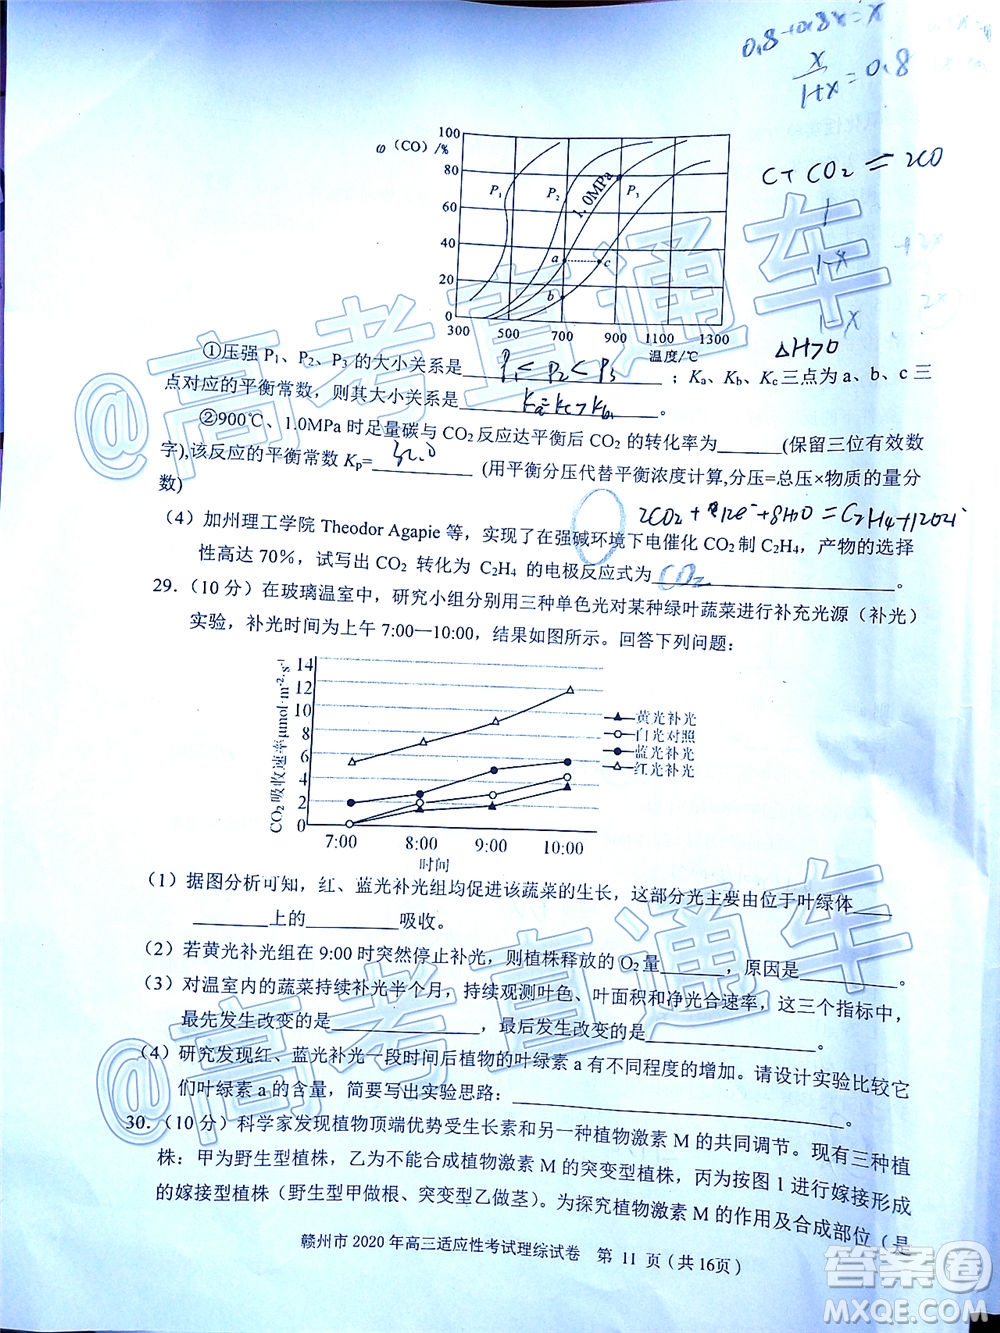 0.8+0.8x=x
x/1+x=0.8
C+CO₂=2CO
1
1-x
1-x
φ（CO）/%
100
80
60
40
20
0
P₁
P₂
P₃
1.0MPa
a
b
c
300 500 700 900 1100 1300
温度/℃
△H>0
①压强 P₁、P₂、P₃ 的大小关系是 P₁<P₂<P₃ ；Kₐ、K_b、K_c 三点为 a、b、c 三
点对应的平衡常数，则其大小关系是 Ka=Kc>Kb 。
②900℃、1.0MPa 时足量碳与 CO₂反应达平衡后 CO₂ 的转化率为______(保留三位有效数
字),该反应的平衡常数 Kp=________ (用平衡分压代替平衡浓度计算,分压=总压×物质的量分
数)
2CO₂+12e⁻+8H₂O=C₂H₄+12OH⁻
（4）加州理工学院 Theodor Agapie 等，实现了在强碱环境下电催化 CO₂ 制 C₂H₄，产物的选择
性高达 70%，试写出 CO₂ 转化为 C₂H₄ 的电极反应式为 CO₂ 。
29．（10 分）在玻璃温室中，研究小组分别用三种单色光对某种绿叶蔬菜进行补充光源（补光）
实验，补光时间为上午 7:00—10:00，结果如图所示。回答下列问题：
CO₂吸收速率μmol·m⁻²·s⁻¹
14
12
10
8
6
4
2
0
黄光补光
白光对照
蓝光补光
红光补光
7:00 8:00 9:00 10:00
时间
（1）据图分析可知，红、蓝光补光组均促进该蔬菜的生长，这部分光主要由位于叶绿体____
________上的________吸收。
（2）若黄光补光组在 9:00 时突然停止补光，则植株释放的 O₂量______，原因是________。
（3）对温室内的蔬菜持续补光半个月，持续观测叶色、叶面积和净光合速率，这三个指标中，
最先发生改变的是____________，最后发生改变的是____________。
（4）研究发现红、蓝光补光一段时间后植物的叶绿素 a 有不同程度的增加。请设计实验比较它
们叶绿素 a 的含量，简要写出实验思路：____________________________。
30．（10 分）科学家发现植物顶端优势受生长素和另一种植物激素 M 的共同调节。现有三种植
株：甲为野生型植株，乙为不能合成植物激素 M 的突变型植株，丙为如图 1 进行嫁接形成
的嫁接型植株（野生型甲做根、突变型乙做茎）。为探究植物激素 M 的作用及合成部位（是
赣州市 2020 年高三适应性考试理综试卷 第 11 页（共 16页）
@高考直通车
@高考直通车
答案圈
MXQE.COM